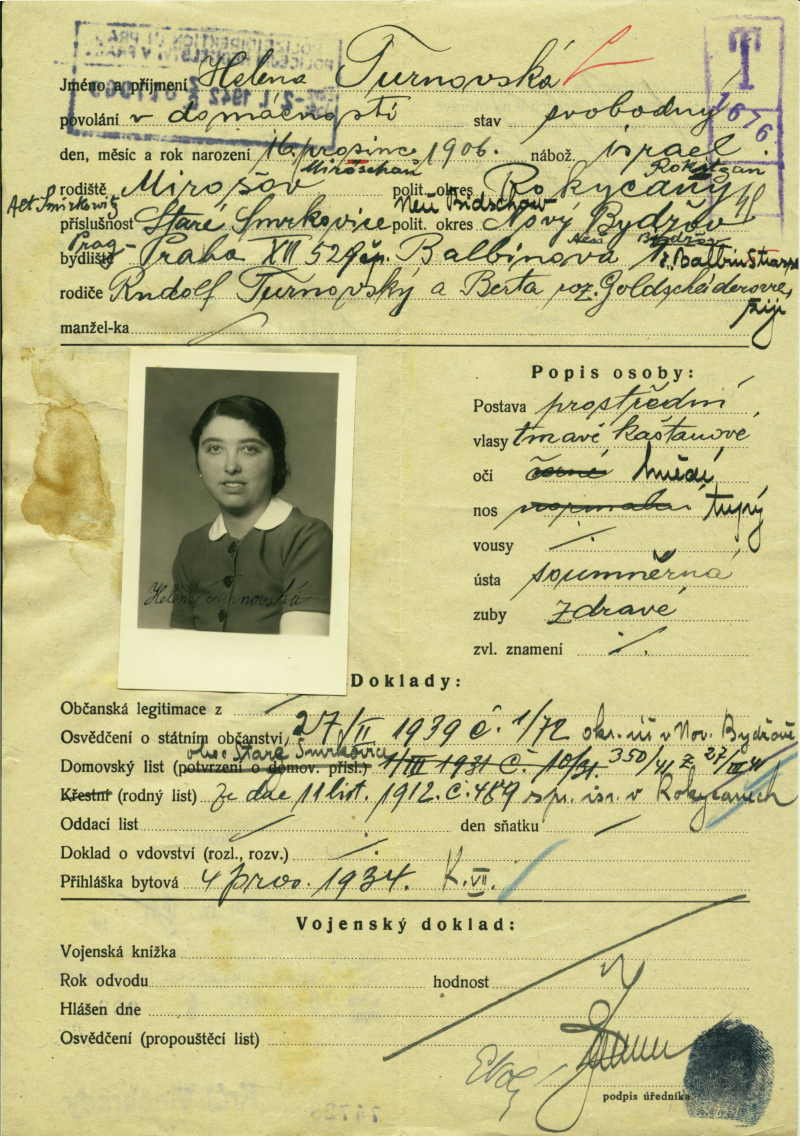 T
1676
Jméno a příjmení Helena Turnovská
povolání v domácnosti stav svobodný
den, měsíc a rok narození 16. prosince 1906. nábož. israel.
Miröschau Rokitzan
rodiště Mirošov polit. okres Rokycany
Alt Smirkowitz Neu Bidschow
příslušnost Staré Smrkovice polit. okres Nový Bydžov
Prag- Neu Bydžov
bydliště Praha XII 529 čp. Balbinova ř. Balbin Strasse
rodiče Rudolf Turnovský a Berta roz. Goldscheiderové,
žijí
manžel-ka
Popis osoby:
Postava prostřední
vlasy tmavě kaštanové
oči černé hnědé
nos normální tupý
vousy /.
ústa souměrná
zuby zdravé
zvl. znamení /.
Helena Turnovská
Doklady:
Občanská legitimace z
Osvědčení o státním občanství 27/II 1939 č. 1/72 okr. úř v Nov. Bydžově
obec Staré Smrkovice
Domovský list (potvrzení o domov. přísl.) 1/III 1931 č. 10/31. 350/41 z 27/III 41
Křestní (rodný list) ze dne 11 list. 1912. č. 489 isr. v Rokycanech
Oddací list den sňatku
Doklad o vdovství (rozl., rozv.) /.
Přihláška bytová 4 pros. 1934. K. VII.
Vojenský doklad:
Vojenská knížka
Rok odvodu hodnost
Hlášen dne
Osvědčení (propouštěcí list)
podpis úředníka